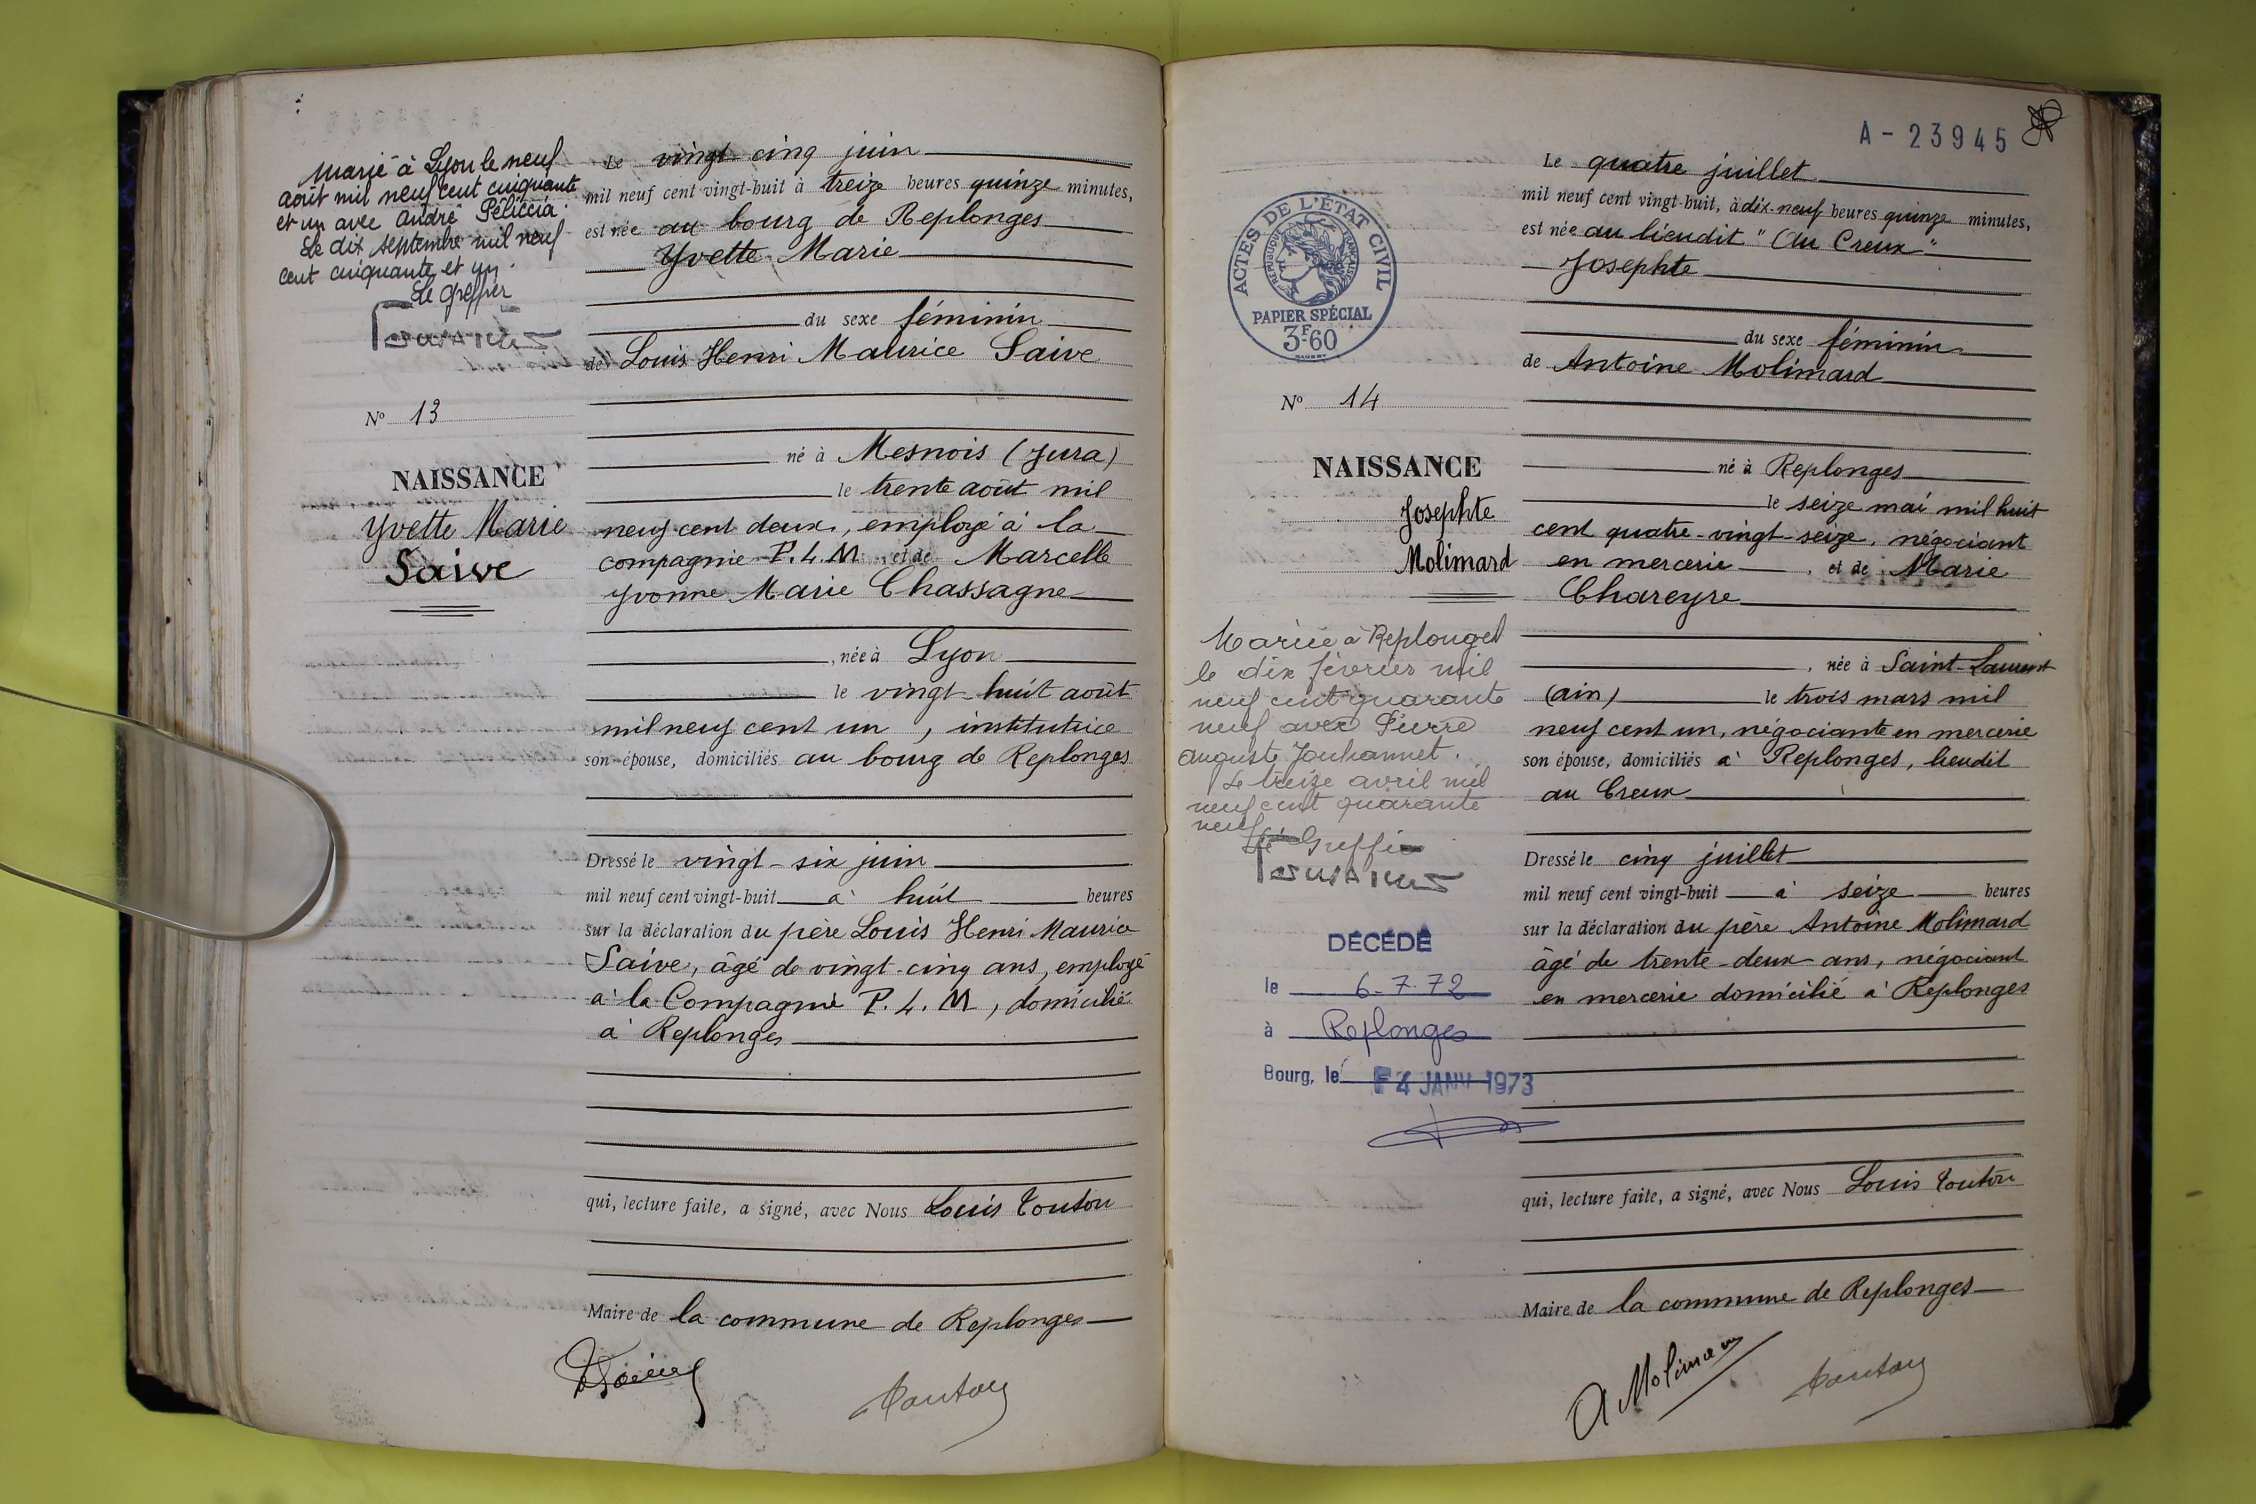 Marié à Lyon le neuf
août mil neuf cent cinquante
et un avec André Péliccia.
Le dix septembre mil neuf
cent cinquante et un.
Le Greffier
N° 13
NAISSANCE
Yvette Marie
Saive
Le vingt cinq juin
mil neuf cent vingt-huit à treize heures quinze minutes,
est née au bourg de Replonges
Yvette Marie
du sexe féminin
de Louis Henri Maurice Saive
né à Mesnois (Jura)
le trente août mil
neuf cent deux, employé à la
compagnie P.L.M. et de Marcelle
Yvonne Marie Chassagne
, née à Lyon
le vingt huit août
mil neuf cent un, institutrice
son épouse, domiciliés au bourg de Replonges
Dressé le vingt-six juin
mil neuf cent vingt-huit à huit heures
sur la déclaration du père Louis Henri Maurice
Saive, âgé de vingt-cinq ans, employé
à la Compagnie P.L.M, domicilié
à Replonges
qui, lecture faite, a signé, avec Nous Louis Touton
Maire de la commune de Replonges
Touton
A - 23945
ACTES DE L'ÉTAT CIVIL
RÉPUBLIQUE FRANÇAISE
PAPIER SPÉCIAL
3F60
N° 14
NAISSANCE
Josephte
Molimard
Mariée à Replonges
le dix février mil
neuf cent quarante
neuf avec Pierre
Auguste Jouhannet.
Le treize avril mil
neuf cent quarante
neuf
Le Greffier
DÉCÉDÉ
le 6-7-72
à Replonges
Bourg, le 4 JANV 1973
Le quatre juillet
mil neuf cent vingt-huit, à dix-neuf heures quinze minutes,
est née au lieudit "Au Creux"
Josephte
du sexe féminin
de Antoine Molimard
né à Replonges
le seize mai mil huit
cent quatre-vingt-seize, négociant
en mercerie, et de Marie
Chareyre
, née à Saint-Laurent
(ain) le trois mars mil
neuf cent un, négociante en mercerie
son épouse, domiciliés à Replonges, lieudit
au Creux
Dressé le cinq juillet
mil neuf cent vingt-huit à seize heures
sur la déclaration du père Antoine Molimard
âgé de trente-deux ans, négociant
en mercerie domicilié à Replonges
qui, lecture faite, a signé, avec Nous Louis Touton
Maire de la commune de Replonges
A Molimard
Touton